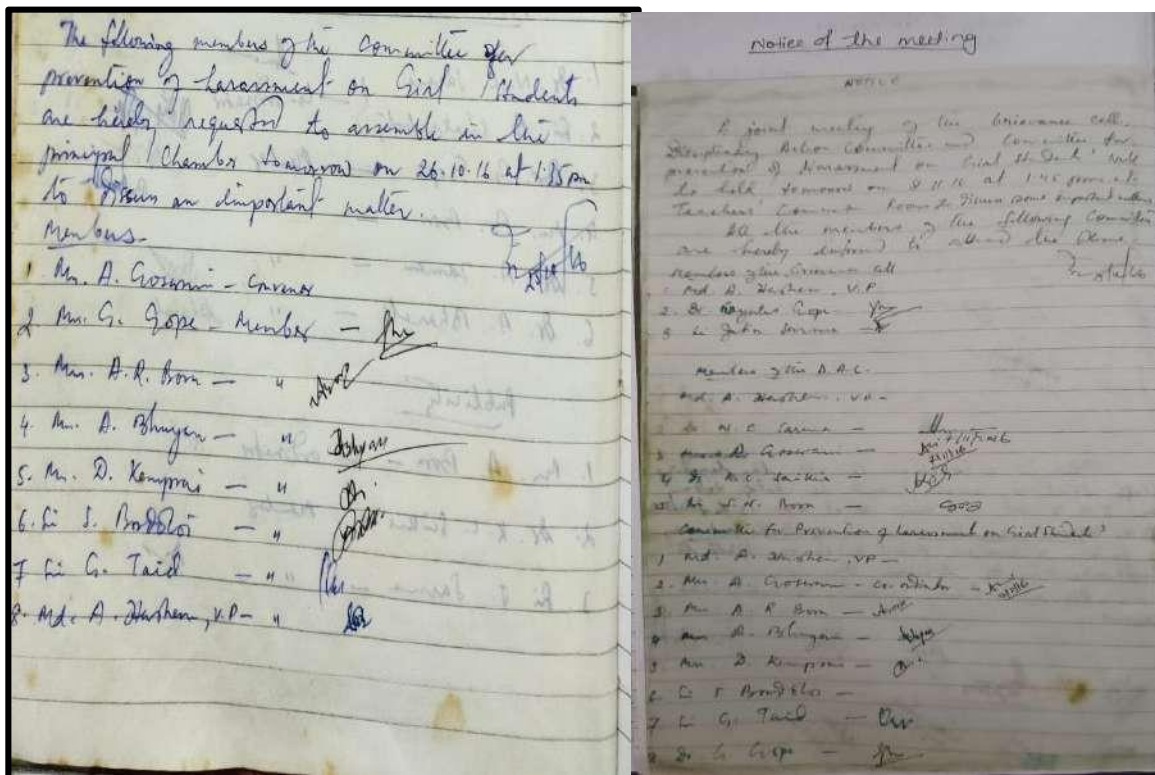 The following members of the Committee for
prevention of harassment on Girl Students
are hereby requested to assemble in the
principal Chamber tomorrow on 26.10.16 at 1.35 pm
to discuss an important matter.
Members-
1. Mrs. A. Goswami - Convenor
2 Mrs. G. Gope - Member -
3. Mrs. A.R. Bora - "
4. Mrs. A. Bhuyan - "
5. Mrs. D. Kemprai - "
6. Sri S. Bordoloi - "
7 Sri G. Taid - "
8. Md. A. Hashem, V.P - "
Notice of the meeting
NOTICE
A joint meeting of the Grievance cell,
Disciplinary Action Committee and Committee for
prevention of Harassment on Girl Students' will
be held tomorrow on 8.11.16 at 1.45 pm at
Teachers' Common Room to discuss some important matters
All the members of the following Committees
are hereby informed to attend the same.
Members of the Grievance cell
1. Md. A. Hashem, V.P
2. Dr. Gope
3 Sri Jatin Sarma -
Members of the D.A.C.
Md. A. Hashem, V.P -
2 C. Sarma -
3 Goswami -
4 Dr. K.C. Saikia -
5. Bora -
Committee for Prevention of Harassment on Girl Students'
1 Md. A. Hashem, VP -
2. Mrs. A. Goswami - Co-ordinator -
3 Mrs A R Bora -
4 Mrs A. Bhuyan -
5 Mrs D. Kemprai -
6 Sri S Bordoloi -
7 Sri G. Taid -
8 Dr G Gope -